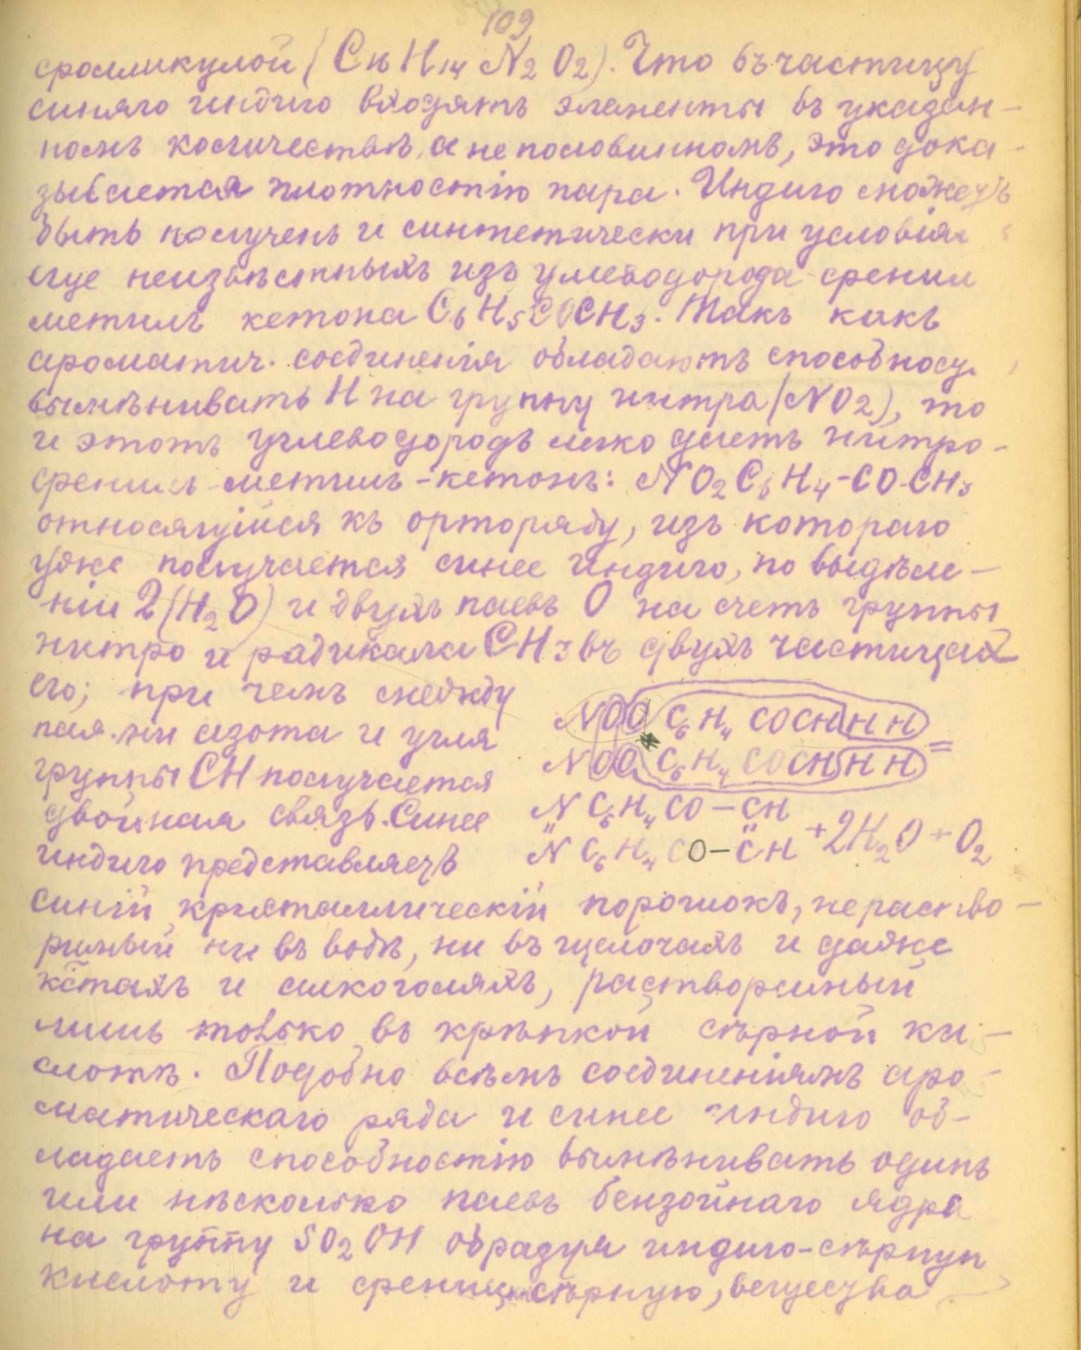 109
формулой (C16 H14 N2 O2). Что въ частицу
синяго индиго входятъ элементы въ указан-
номъ количествѣ, а не половинномъ, это дока-
зывается плотностію пара. Индиго можетъ
быть полученъ и синтетически при условія
еще неизвѣстныхъ изъ углеводорода фенил
метилъ кетона C6 H5 COCH3. Такъ какъ
ароматич. соединенія обладаютъ способносц
вымѣнивать H на группу нитро (NO2), то
и этотъ углеводородъ легко даетъ нитро-
фенилъ-метилъ-кетонъ: NO2 C6 H4-CO-CH3
относящійся къ орторяду, изъ котораго
уже получается синее индиго, по выдѣле-
ніи 2(H2O) и двухъ паевъ O на счетъ группы
нитро и радикала CH3 въ двухъ частицахъ
его; при чемъ между
паями азота и угля
группы CH получается
двойная связь. Синее
индиго представляетъ
NOO C6 H4 COCHHH
NOO C6 H4 COCHHH =
N C6 H4 CO-CH
N̈ C6 H4 CO-C̈H +2H2O + O2
синій кристаллическій порошокъ, нераство-
римый ни въ водѣ, ни въ щелочахъ и даже
к-тахъ и алкоголяхъ, растворимый
лишь только въ крѣпкой сѣрной ки-
слотѣ. Подобно всѣмъ соединеніямъ аро-
матическаго ряда и синее индиго об-
ладаетъ способностію вымѣнивать одинъ
или нѣсколько паевъ бензойнаго ядра
на группу SO2OH образуя индиго-сѣрную
кислоту и феницисѣрную, вещества